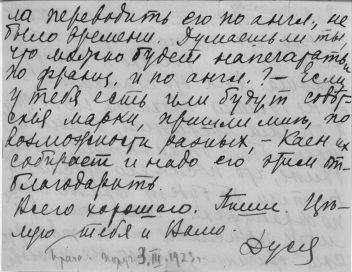 ла переводить его по англ., не
было времени. Думаешь ли ты,
что можно будет напечатать
по франц. и по англ.? – Если
у тебя есть или будут совѣт-
скія марки, пришли мнѣ, по
возможности разных, – Каен их
собирает и надо его этим от-
благодарить.
Всего хорошаго. Пиши. Цѣ-
лую тебя и Вашо.
Дуся
Прага. получ. 3.III.1923 г.